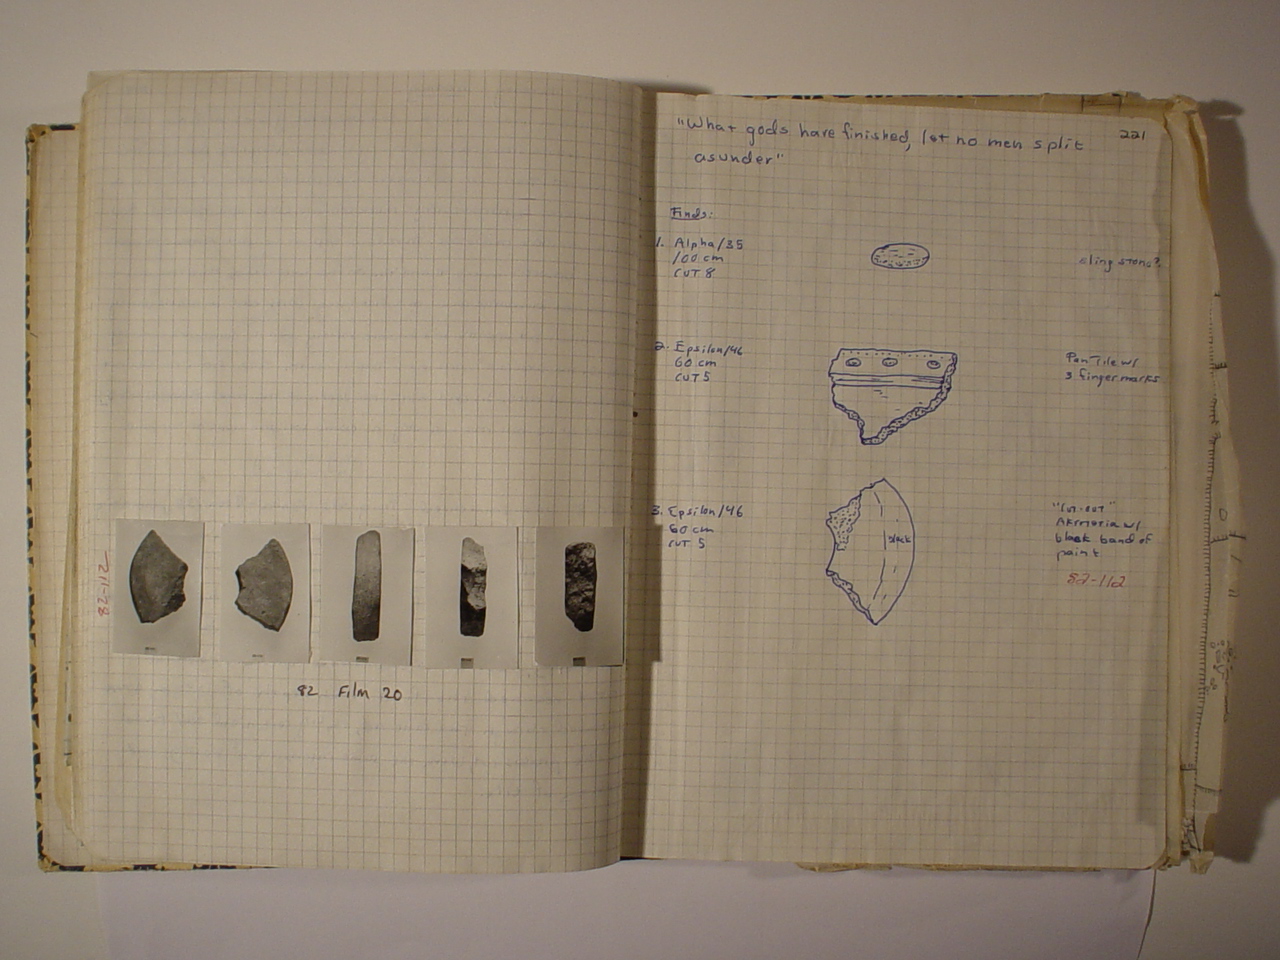 82-112
82 Film 20
221
"What gods have finished, let no men split
asunder"
Finds:
1. Alpha/35
100 cm
CUT 8
sling stone?
2. Epsilon/46
60 cm
CUT 5
Pan Tile w/
3 fingermarks
3. Epsilon/46
60 cm
CUT 5
black
"cut-out"
Akroteria w/
black band of
paint
82-112